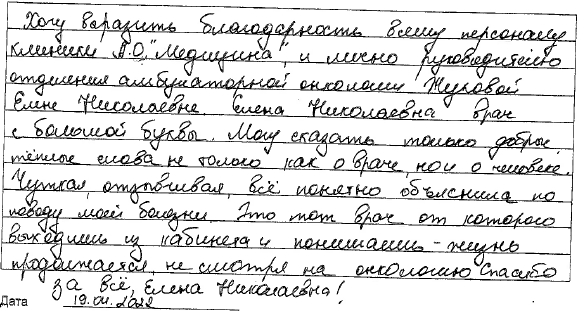 Хочу выразить благодарность всему персоналу
клиники А.О. "Медицина", и лично руководителю
отделения амбулаторной онкологии Жуковой
Елене Николаевне. Елена Николаевна врач
с большой буквы. Могу сказать только добрые,
тёплые слова не только как о враче, но и о человеке.
Чуткая, отзывчивая, всё понятно объяснила по
поводу моей болезни. Это тот врач от которого
выходишь из кабинета и понимаешь - жизнь
продолжается, не смотря на онкологию Спасибо
за всё, Елена Николаевна!
Дата 19.04.2022